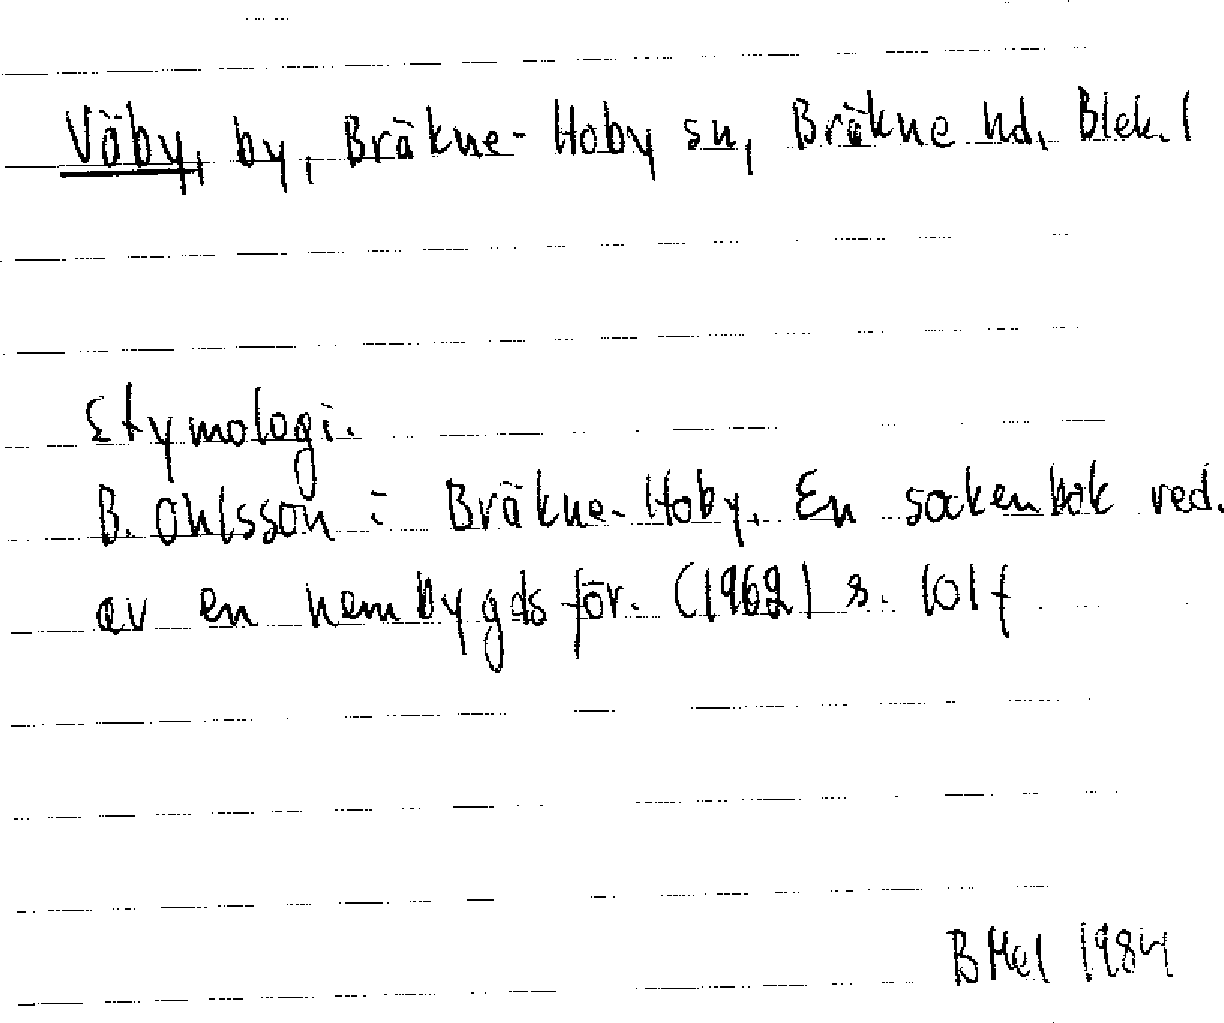 Väby, by, Bräkne-Hoby sn, Bräkne hd, Blek. l
Etymologi.
B. Ohlsson i Bräkne-Hoby. En sockenbok red.
av en hembygdsför. (1962) s. 101 f
BMel 1984